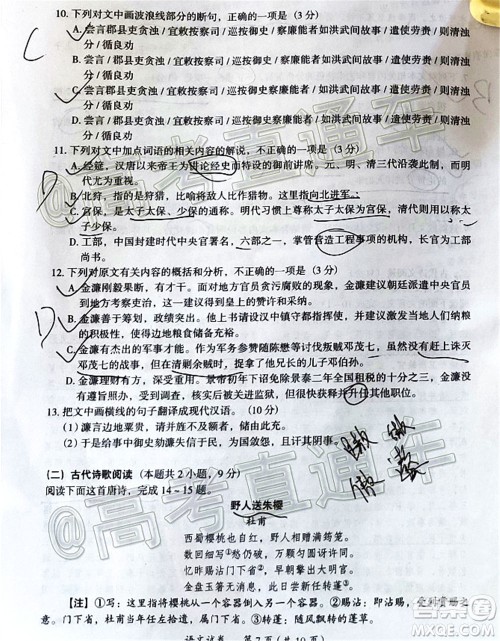 10. 下列对文中画波浪线部分的断句，正确的一项是（3 分）
A. 尝言郡县吏贪浊 / 宜敕按察司 / 巡按御史 / 察廉能者 / 如洪武间故事 / 遣使劳赉 / 则清浊
分 / 循良劝
B. 尝言郡县吏贪浊 / 宜敕按察司 / 巡按御史察廉能者 / 如洪武间故事 / 遣使劳赉 / 则清浊
分 / 循良劝
C. 尝言郡县吏贪浊 / 宜敕按察司 / 巡按御史察廉能者 / 如洪武间故事 / 遣使劳赉 / 则清浊
分 / 循良劝
D. 尝言郡县吏贪浊 / 宜敕按察司 / 巡按御史 / 察廉能者 / 如洪武间故事 / 遣使劳赉 / 则清浊
分 / 循良劝
11. 下列对文中加点词语的相关内容的解说，不正确的一项是（3 分）
A. 经筵，汉唐以来帝王为讲论经史而特设的御前讲席。元、明、清三代沿袭此制，而明代
尤为重视。
B. 北狩，指的是狩猎，比喻的是作战比作猎物。这里指向北进军。
C. 宫保，是太子太保、少保的通称。明代习惯上尊称太子太保为宫保，清代则用以称太
子少保。
D. 工部，中国封建时代中央官署名，六部之一，掌管营造工程事项的机关，长官为工部
尚书。
12. 下列对原文有关内容的概括和分析，不正确的一项是（3 分）
A. 金濂刚毅果断，有才干。面对官员贪污腐败的现象，金濂建议朝廷派遣中央官员
到地方考察吏治，这一建议得到皇上的赞许和采纳。
B. 金濂善于筹划，政绩突出。他上书请加汉中镇守都指挥使，并建议激发当地人们纳粮
的积极性，使得边地粮食储备充裕。
C. 金濂有杰出的军事才能。作为军务参赞随陈懋等讨伐叛贼邓茂七，虽然没有赶上诛灭
邓茂七的战事，但在后来的平乱中，诱捕了接替他的兄长的儿子邓伯孙。
D. 金濂理财有方，深受重用。景帝初年下诏免除景泰二年全国租税的十分之三，金濂没
有遵旨照办，并受到弹劾、被捕入狱。但很快获释并升任其他职权。
13. 把文中画横线的句子翻译成现代汉语。（10 分）
（1）濂言边地粟贵，请并旌不及额者，储蓄由此充。
（2）于是给事中御史劾濂失信于民，为国敛怨，且讦其阴事。
（二）古代诗歌阅读（本题共 2 小题，9 分）
阅读下面这首唐诗，完成 14－15 题。
野人送朱樱
杜甫
西蜀樱桃也自红，野人相赠满筠笼。
数回细写①愁仍破，万颗匀圆讶许同。
忆昨赐沾门下省，早朝擎出大明宫。
金盘玉箸无消息，此日尝新任转蓬③。
【注】①写：这里指将樱桃从一容器倾入另一容器。②赐沾：
门下省，杜甫当年曾任左拾遗，属门下省。③转蓬：随风飘转的蓬草。
语文试卷 第 7 页（共 10 页）
@高考直通车
@高考直通车